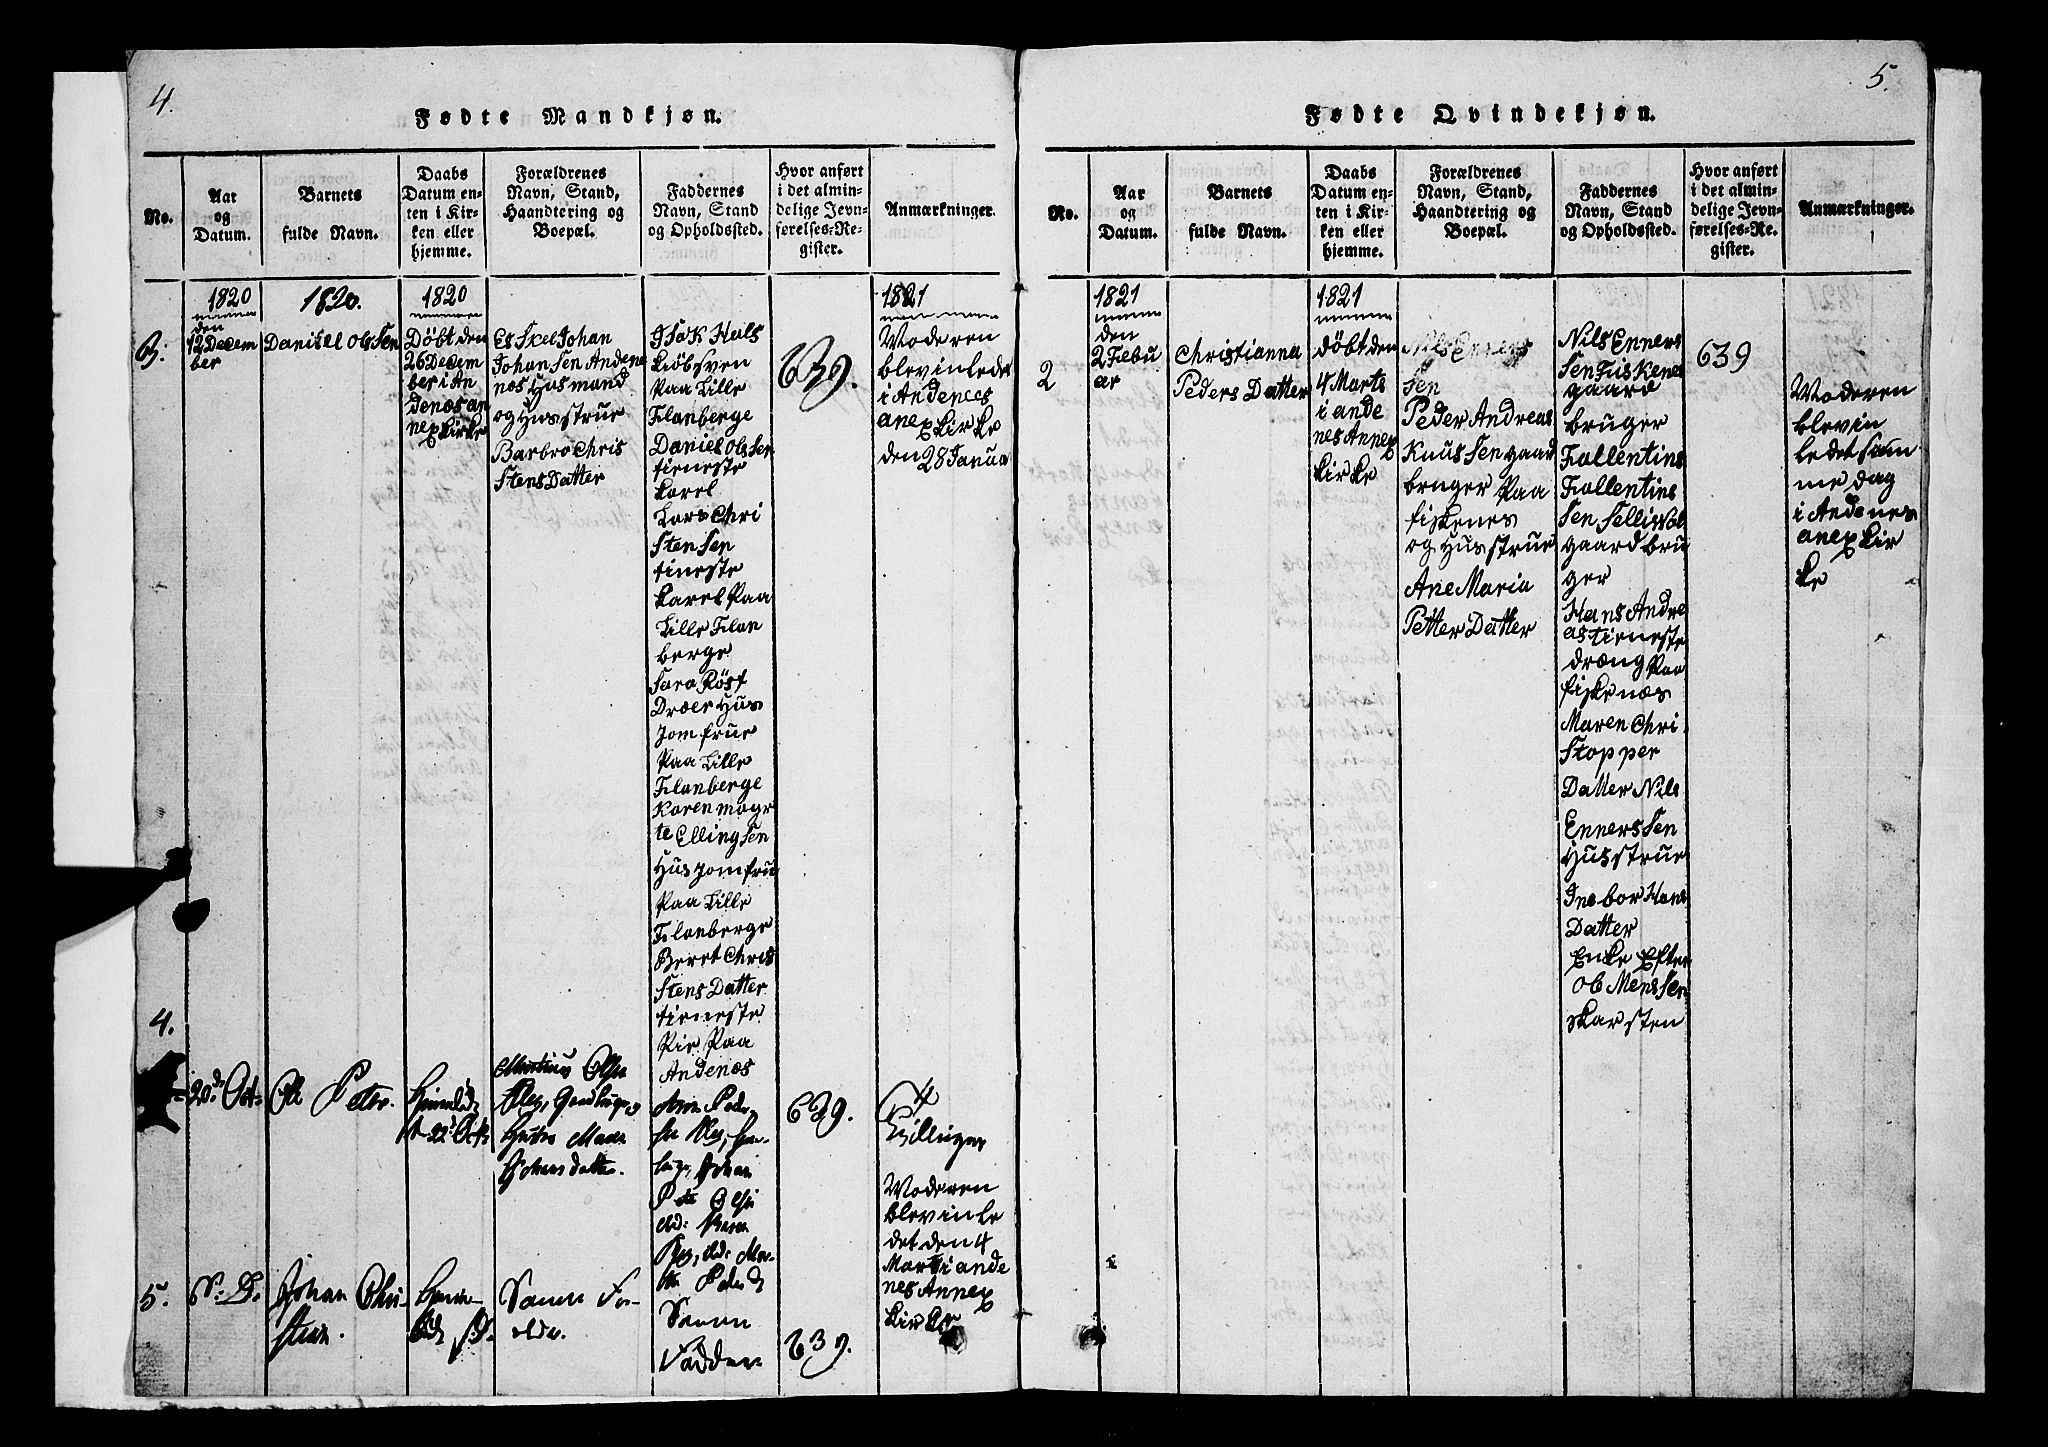 4.
Fødte Mandkjøn.
No.
Aar
og
Datum.
Barnets
fulde Navn.
Daabs
Datum en-
ten i Kir-
ken eller
hjemme.
Forældrenes
Navn, Stand,
Haandtering og
Boepæl.
Faddernes
Navn, Stand
og Opholdssted.
Hvor anført
i det almin-
delige Jevn-
førelses-Re-
gister.
Anmærkninger.
3.
1820
den
12 Decem
ber
1820.
Daniael Ols Sen
1820
Döbt den
26 Decem
ber i An
denæs an
nex Kirke
Es Skel Johan
Johan Sen Andene
næs Husmand
og Husstrue
Barbro Chris
Stens Datter
Isak Heils
Kiöbsven
Paa Lille
Filanberge
Daniel Ols Sen
tieneste
karel
Lars Chri
Sten Sen
tineste
karel Paa
Lille Filan
berge
Sara Röst
Dræer Hus
Jomfrue
Paa Lille
Filanberge
Karen magr
te Elling Sen
Hus Jomfru
Paa Lille
Filanberge
Beret Chris
Stens Datter
tieneste
Pie Paa
Andenæs
639.
1821
Moderen
blev inledet
i Andenes
anex Kirke
den 28 Janua
4.
20de Oct.
Ole Peter.
Hjemdöbt
d. 22d Oct.
Martinus Olsen
Hustro Maren
Johansdatter.
Johan
639.
4
Tvillinger
Moderen
blev in le
det den 4
Mart i ande
nes Annex
Kirke
5.
S. D.
Johan Chri-
stian.
Hjem-
döbt s. D.
Samme For-
ældre.
Samme
Faddere
639.
5.
Fødte Qvindekjøn.
No.
Aar
og
Datum.
Barnets
fulde Navn.
Daabs
Datum en-
ten i Kir-
ken eller
hjemme.
Forældrenes
Navn, Stand,
Haandtering og
Boepæl.
Faddernes
Navn, Stand
og Opholdssted.
Hvor anført
i det almin-
delige Jevn-
førelses-Re-
gister.
Anmærkninger.
2
1821
den
2 Febu
ar
Christianna
Peders Datter
1821
döbt den
4 Marts
i ande
nes Annex
Kirke
Nils Enners
Sen
Peder Andreas
Knus Sen gaard
bruger Paa
fiskenes
og Husstrue
Ane Maria
Petter Datter
Nils Enners
Sen Fiskenes
gaard
bruger
Fallentins
Fallentins
Sen Selliwol
gaard bru
ger
Hans Andre
as tieneste
dræng Paa
fiskenæs
Maren Chri
Stopper
Datter Nils
Enners Sen
Husstrue
Inebor Hans
Datter
Enke Efter
ob Mens Sen
skarsten
639
Moderen
blev in
ledet sam
me dag
i Andenes
anex Kir
ke